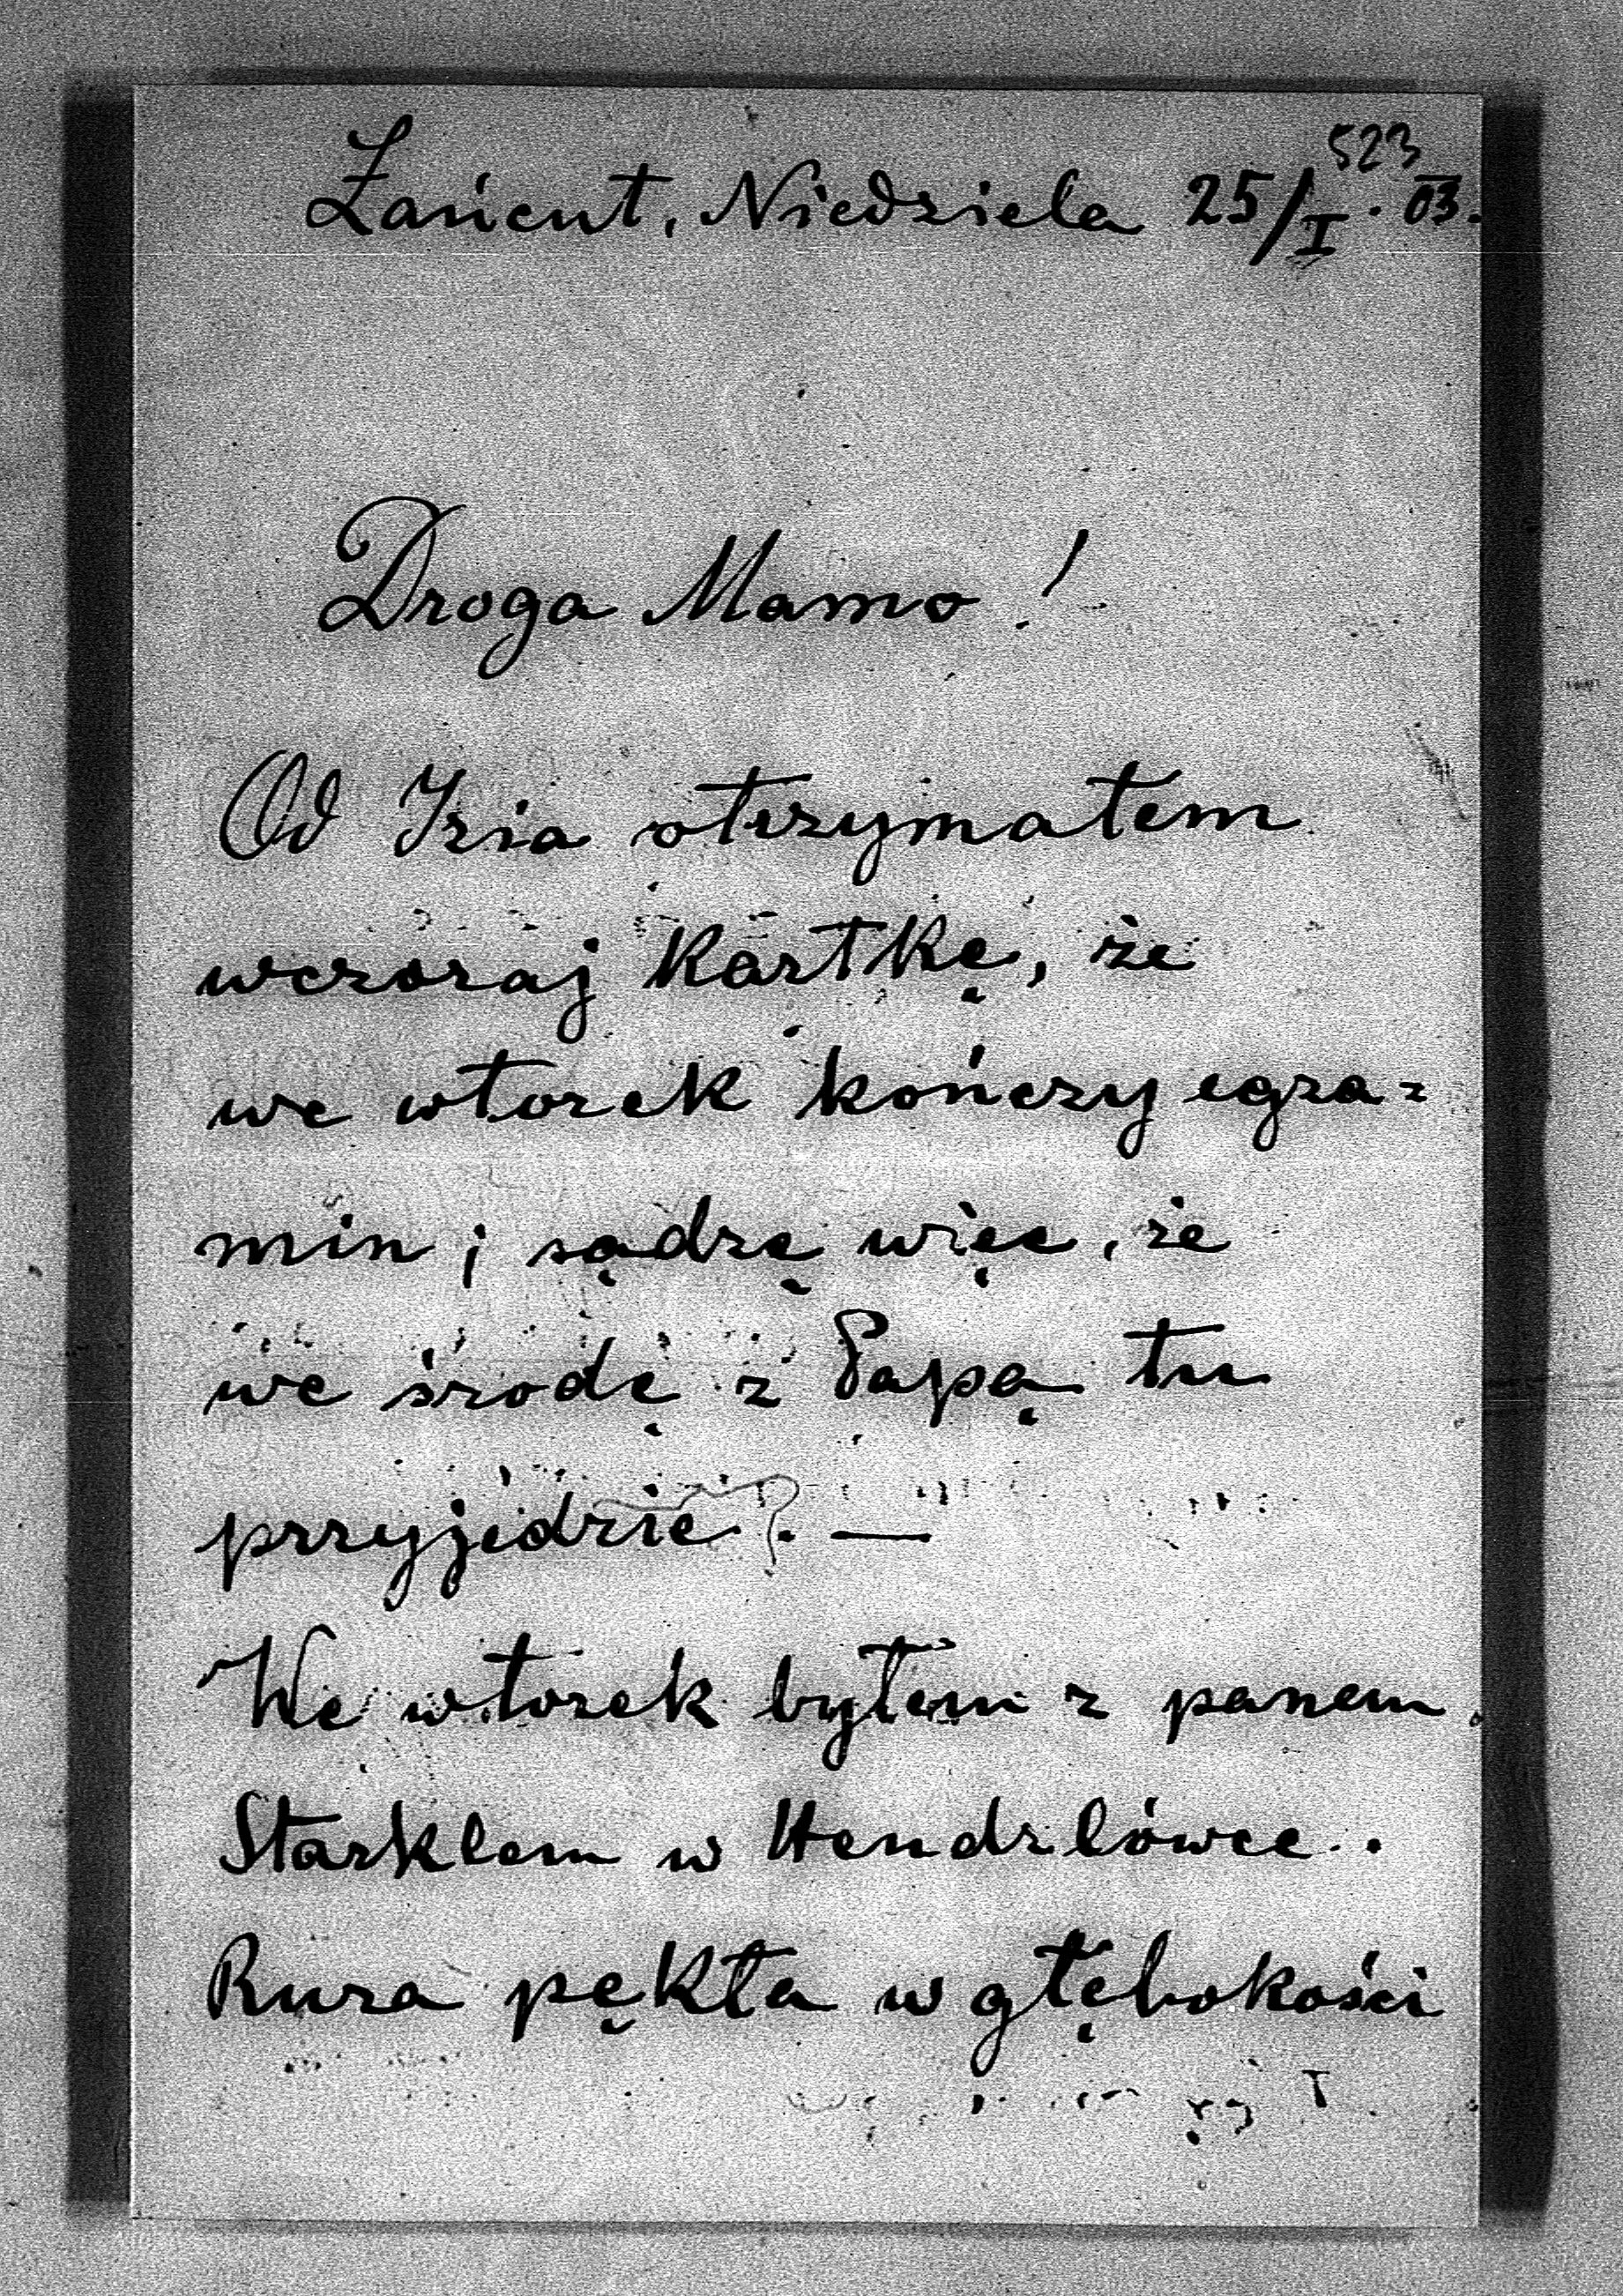 523
Łańcut, Niedziela 25/I. 03.
Droga Mamo!
Od Izia otrzymałem
wczoraj kartkę, że
we wtorek kończy egza=
min; sądzę więc, że
we środę z Papą tu
przyjedzie. —
We wtorek byłem z panem
Starklem w Hendzlówce.
Rura pękła w głębokości